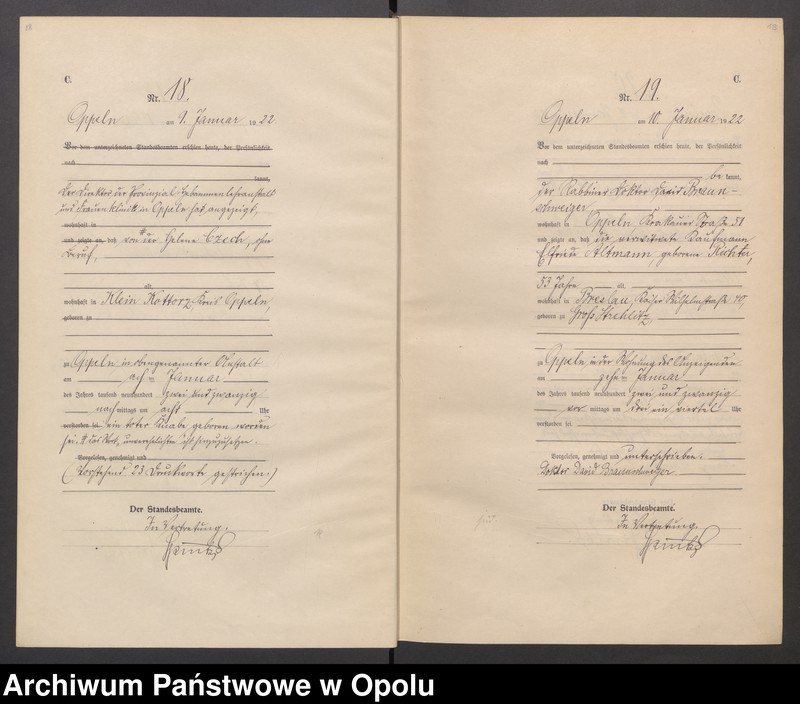 C.
Nr. 18.
Oppeln am 9. Januar 1922
Vor dem unterzeichneten Standesbeamten erschien heute, der Persönlichkeit
nach
kannt,
Der Direktor der Provinzial Hebammenlehranstalt
und Frauenklinik in Oppeln hat angezeigt,
wohnhaft in
und zeigte an, daß von # der Helene Czech, ohne
Beruf,
alt,
wohnhaft in Klein Kottorz, Kreis Oppeln,
geboren zu
zu Oppeln in obengenannter Anstalt
am acht ten Januar
des Jahres tausend neunhundert zwei und zwanzig
nach mittags um acht Uhr
verstorben sei ein toter Knabe geboren worden
sei. # das Wort „unverehelichten" ist hinzuzusetzen.
Vorgelesen, genehmigt und
(Vorstehend 23 Druckworte gestrichen.)
Der Standesbeamte.
In Vertretung.
C.
Nr. 19.
Oppeln am 10. Januar 1922
Vor dem unterzeichneten Standesbeamten erschien heute, der Persönlichkeit
nach
be kannt,
der Rabbiner Doktor David Braun-
schweiger
wohnhaft in Oppeln, Krakauer Straße 51
und zeigte an, daß die verwitwete Kaufmann
Elfriede Altmann, geborene Richter,
53 Jahre alt,
wohnhaft in Breslau, Kaiser Wilhelmstraße 40,
geboren zu Groß Strehlitz,
zu Oppeln in der Wohnung des Anzeigenden
am zehn ten Januar
des Jahres tausend neunhundert zwei und zwanzig
vor mittags um drei ein viertel Uhr
verstorben sei.
Vorgelesen, genehmigt und unterschrieben.
Doktor David Braunschweiger
Der Standesbeamte.
In Vertretung.
Archiwum Państwowe w Opolu